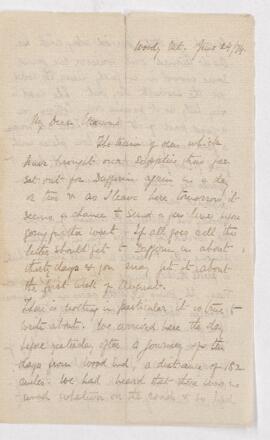 Wood, Oct. June 24/74.
My Dear
The team of oxen which
have brought our supplies thus far
set out for Dufferin again in a day
or two & as I leave here tomorrow it
seems a chance to send a few lines before
going further west. If all goes well this
letter should get to Dufferin in about
thirty days & you may get it about
the first week of August.
There is nothing in particular it is true to
write about. We arrived here the day
before yesterday after a journey of ten
days from Wood End, a distance of 182
miles. We had heard that there was no
wood whatever on the road & so had